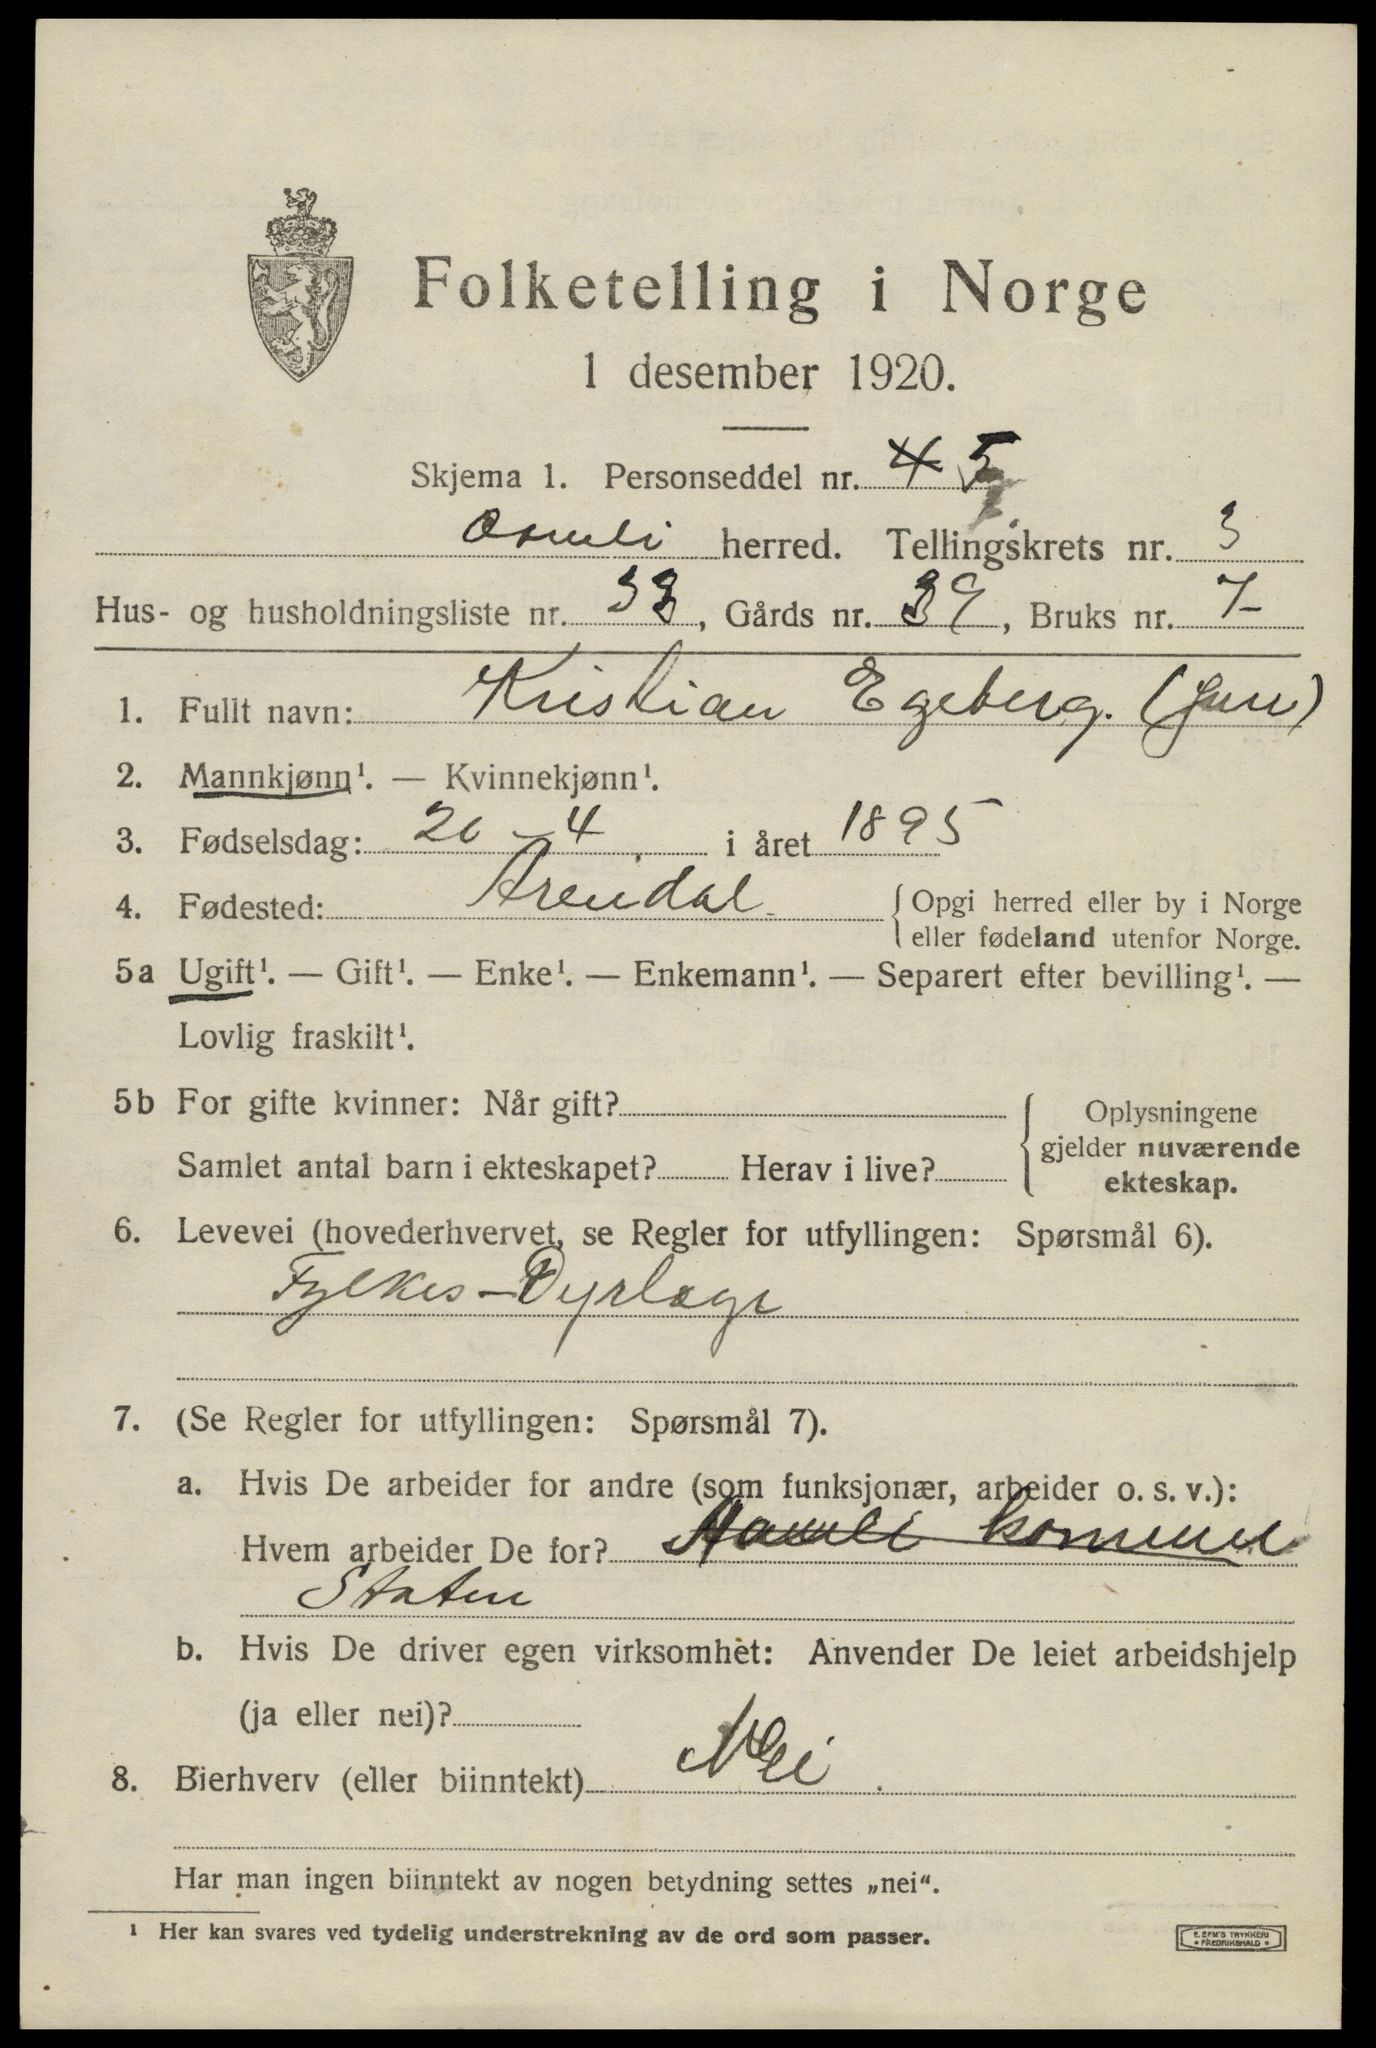 Folketelling i Norge
1 desember 1920.
Skjema 1. Personseddel nr. 4 5
herred. Tellingskrets nr. 3
Hus- og husholdningsliste nr. 33, Gårds nr. 39, Bruks nr. 7
1. Fullt navn: Kristian Egeberg. (jun)
2. Mannkjønn¹. — Kvinnekjønn¹.
3. Fødselsdag: 20-4 i året 1895
4. Fødested: Arendal. { Opgi herred eller by i Norge
eller fødeland utenfor Norge.
5a Ugift¹. — Gift¹. — Enke¹. — Enkemann¹. — Separert efter bevilling¹. —
Lovlig fraskilt¹.
5b For gifte kvinner: Når gift?
Samlet antal barn i ekteskapet? Herav i live?
{ Oplysningene
gjelder nuværende
ekteskap.
6. Levevei (hovederhvervet, se Regler for utfyllingen: Spørsmål 6).
Fylkes-Dyrlæge
7. (Se Regler for utfyllingen: Spørsmål 7).
a. Hvis De arbeider for andre (som funksjonær, arbeider o. s. v.):
Hvem arbeider De for? Aamli kommune
Staten
b. Hvis De driver egen virksomhet: Anvender De leiet arbeidshjelp
(ja eller nei)?
8. Bierhverv (eller biinntekt) Nei.
Har man ingen biinntekt av nogen betydning settes „nei“.
¹ Her kan svares ved tydelig understrekning av de ord som passer.
E. SEM'S TRYKKERI
• FREDRIKSHALD •